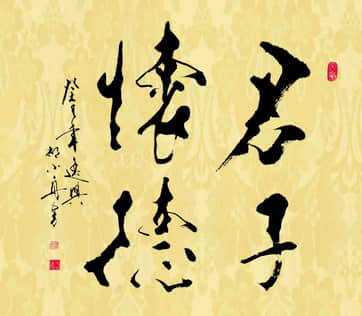 君子
懷德
癸巳年逸興